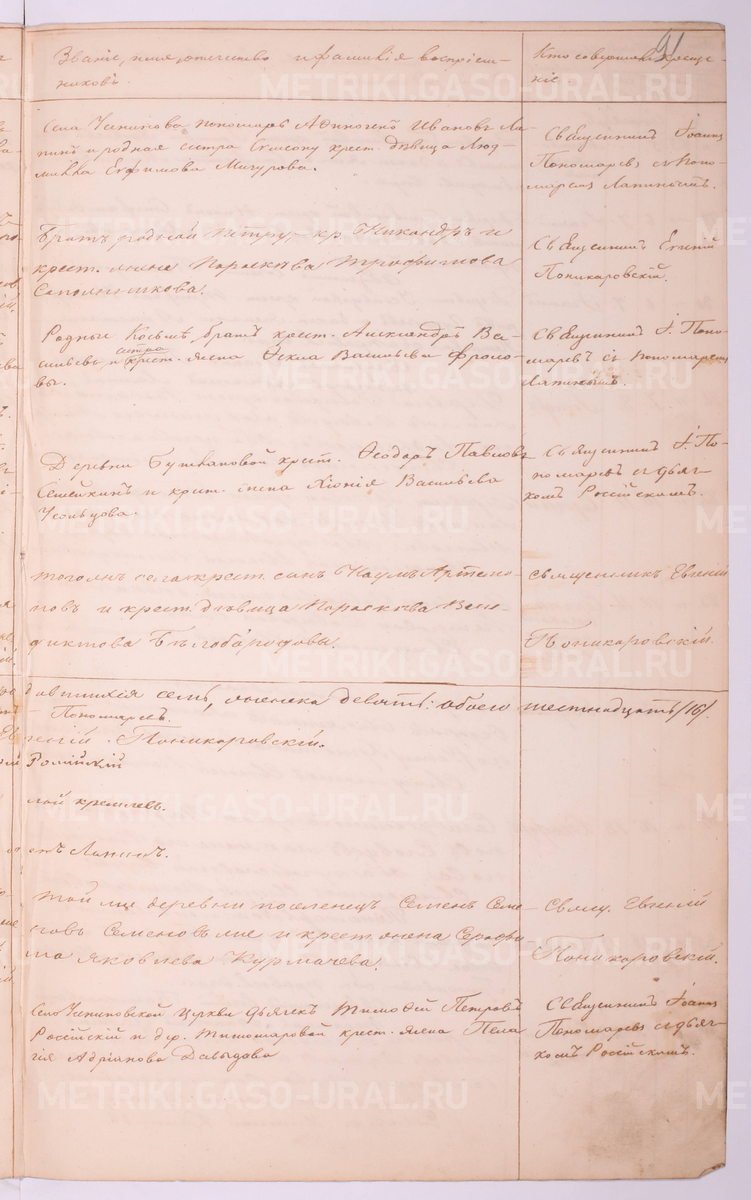 91
Званіе, имя, отчество и фамилія воспріем-
никовъ.
Кто совершалъ креще-
ніе
Села Чупинова пономарь Афиногенъ Ивановъ Ла-
пинъ и родная сестра крест. дѣвица Люд-
милла Евфимова Мичурова.
Священникъ Іоаннъ
Пономаревъ съ поно-
маремъ Лапинымъ.
Братъ родной Петру, кр. Никандръ и
крест. жена Параскѣва Трофимова
Сапожникова.
Священникъ Евгеній
Поникаровскій.
Родные Козьмѣ, братъ крест. Александръ Ва-
сильевъ и сестра крест. жена Ѳекла Васильевы Фроло-
вы.
Священникъ І. Поно-
маревъ съ пономаремъ
Лапинымъ.
Деревни крест. Ѳеодоръ Павловъ
Семейкинъ и крест. жена Хіонія Васильева
Усольцова.
Священникъ І. По-
номаревъ съ дьяч-
комъ Россійскимъ.
того же села крест. сынъ Наумъ Артемо-
новъ и крест. дѣвица Параскѣва Вене-
диктова Бѣлобородова.
Священникъ Евгеній
Поникаровскій.
семь, женска девять: обоего шестнадцать /16/.
Пономаревъ.
геній Поникаровскій.
Россійскій
лай Кремлевъ.
енъ Лапинъ.
той же деревни поселенецъ Семенъ Семе-
новъ и крест. жена Серафи-
ма Яковлева Курмачева.
Свящ. Евгеній
Поникаровскій.
Село Чупиновской церкви дьячекъ Тимофей Петровъ
Россійскій и дер. крест. жена Пела
гія Адріанова Давыдова
Священникъ Іоаннъ
Пономаревъ съ дьяч-
комъ Россійскимъ.
METRIKI.GASO-URAL.RU